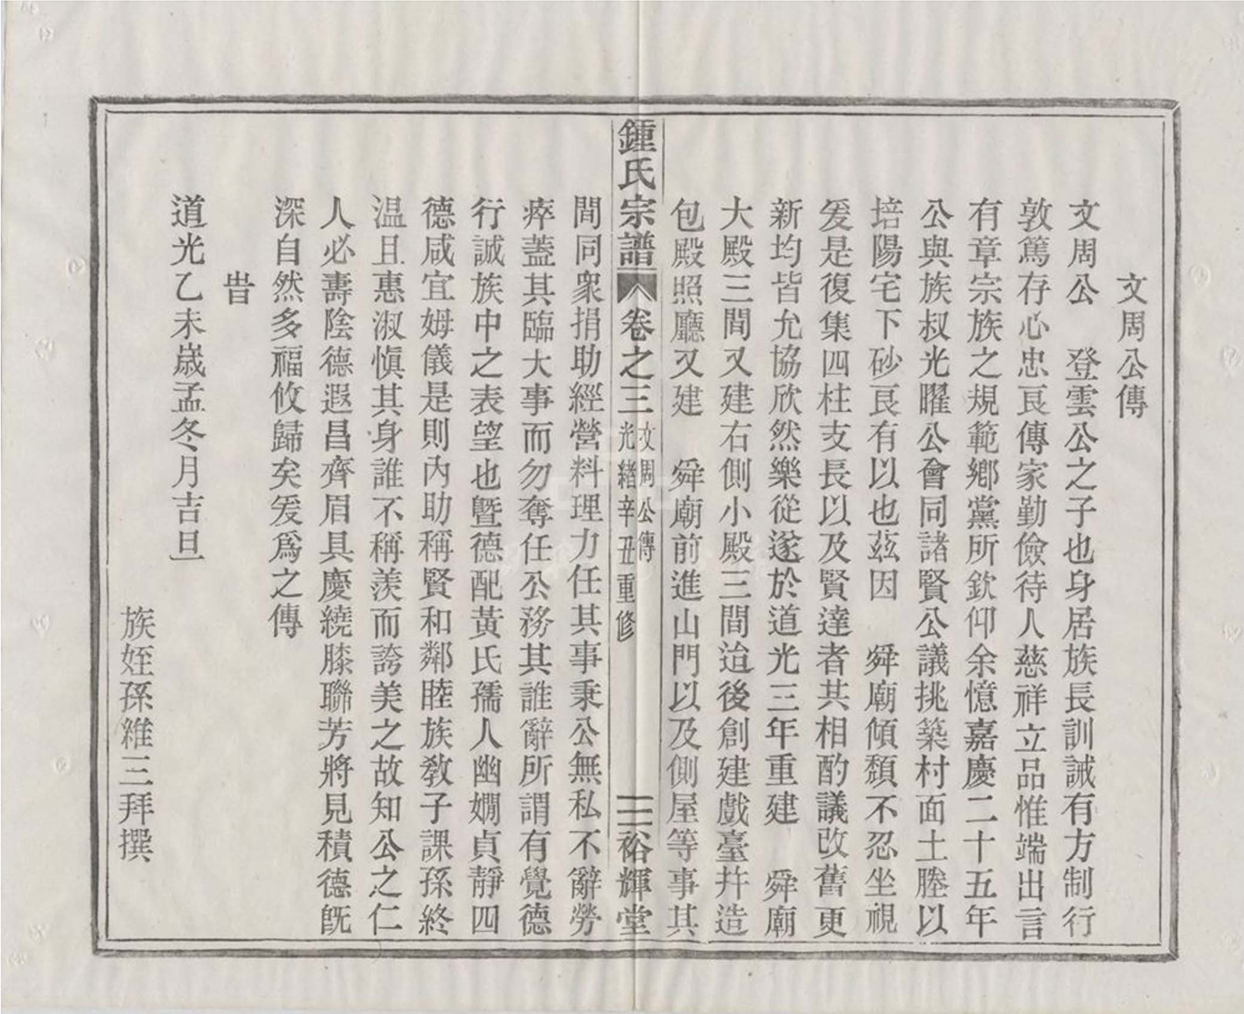 文周公傳
文周公　登雲公之子也身居族長訓誡有方制行
敦篤存心忠艮傳家勤儉待人慈祥立品惟端出言
有章宗族之規範鄉黨所欽仰余憶嘉慶二十五年
公與族叔光曜公會同諸賢公議挑築村面土塍以
培陽宅下砂艮有以也茲因　舜廟傾頹不忍坐視
爰是復集四柱支長以及賢達者共相酌議改舊更
新均皆允協欣然樂從遂於道光三年重建　舜廟
大殿三間又建右側小殿三間迨後創建戲臺幷造
包殿照廳又建　舜廟前進山門以及側屋等事其
鍾氏宗譜　卷之三　文周公傳
光緒辛丑重修
三　裕輝堂
間同衆捐助經營料理力任其事秉公無私不辭勞
瘁蓋其臨大事而勿奪任公務其誰辭所謂有覺德
行誠族中之表望也曁德配黃氏孺人幽嫺貞靜四
德咸宜姆儀是則內助稱賢和鄰睦族教子課孫終
温且惠淑愼其身誰不稱羨而誇美之故知公之仁
人必壽陰德遐昌齊眉具慶繞膝聯芳將見積德旣
深自然多福攸歸矣爰爲之傳
旹
道光乙未歲孟冬月吉旦
族姪孫維三拜撰